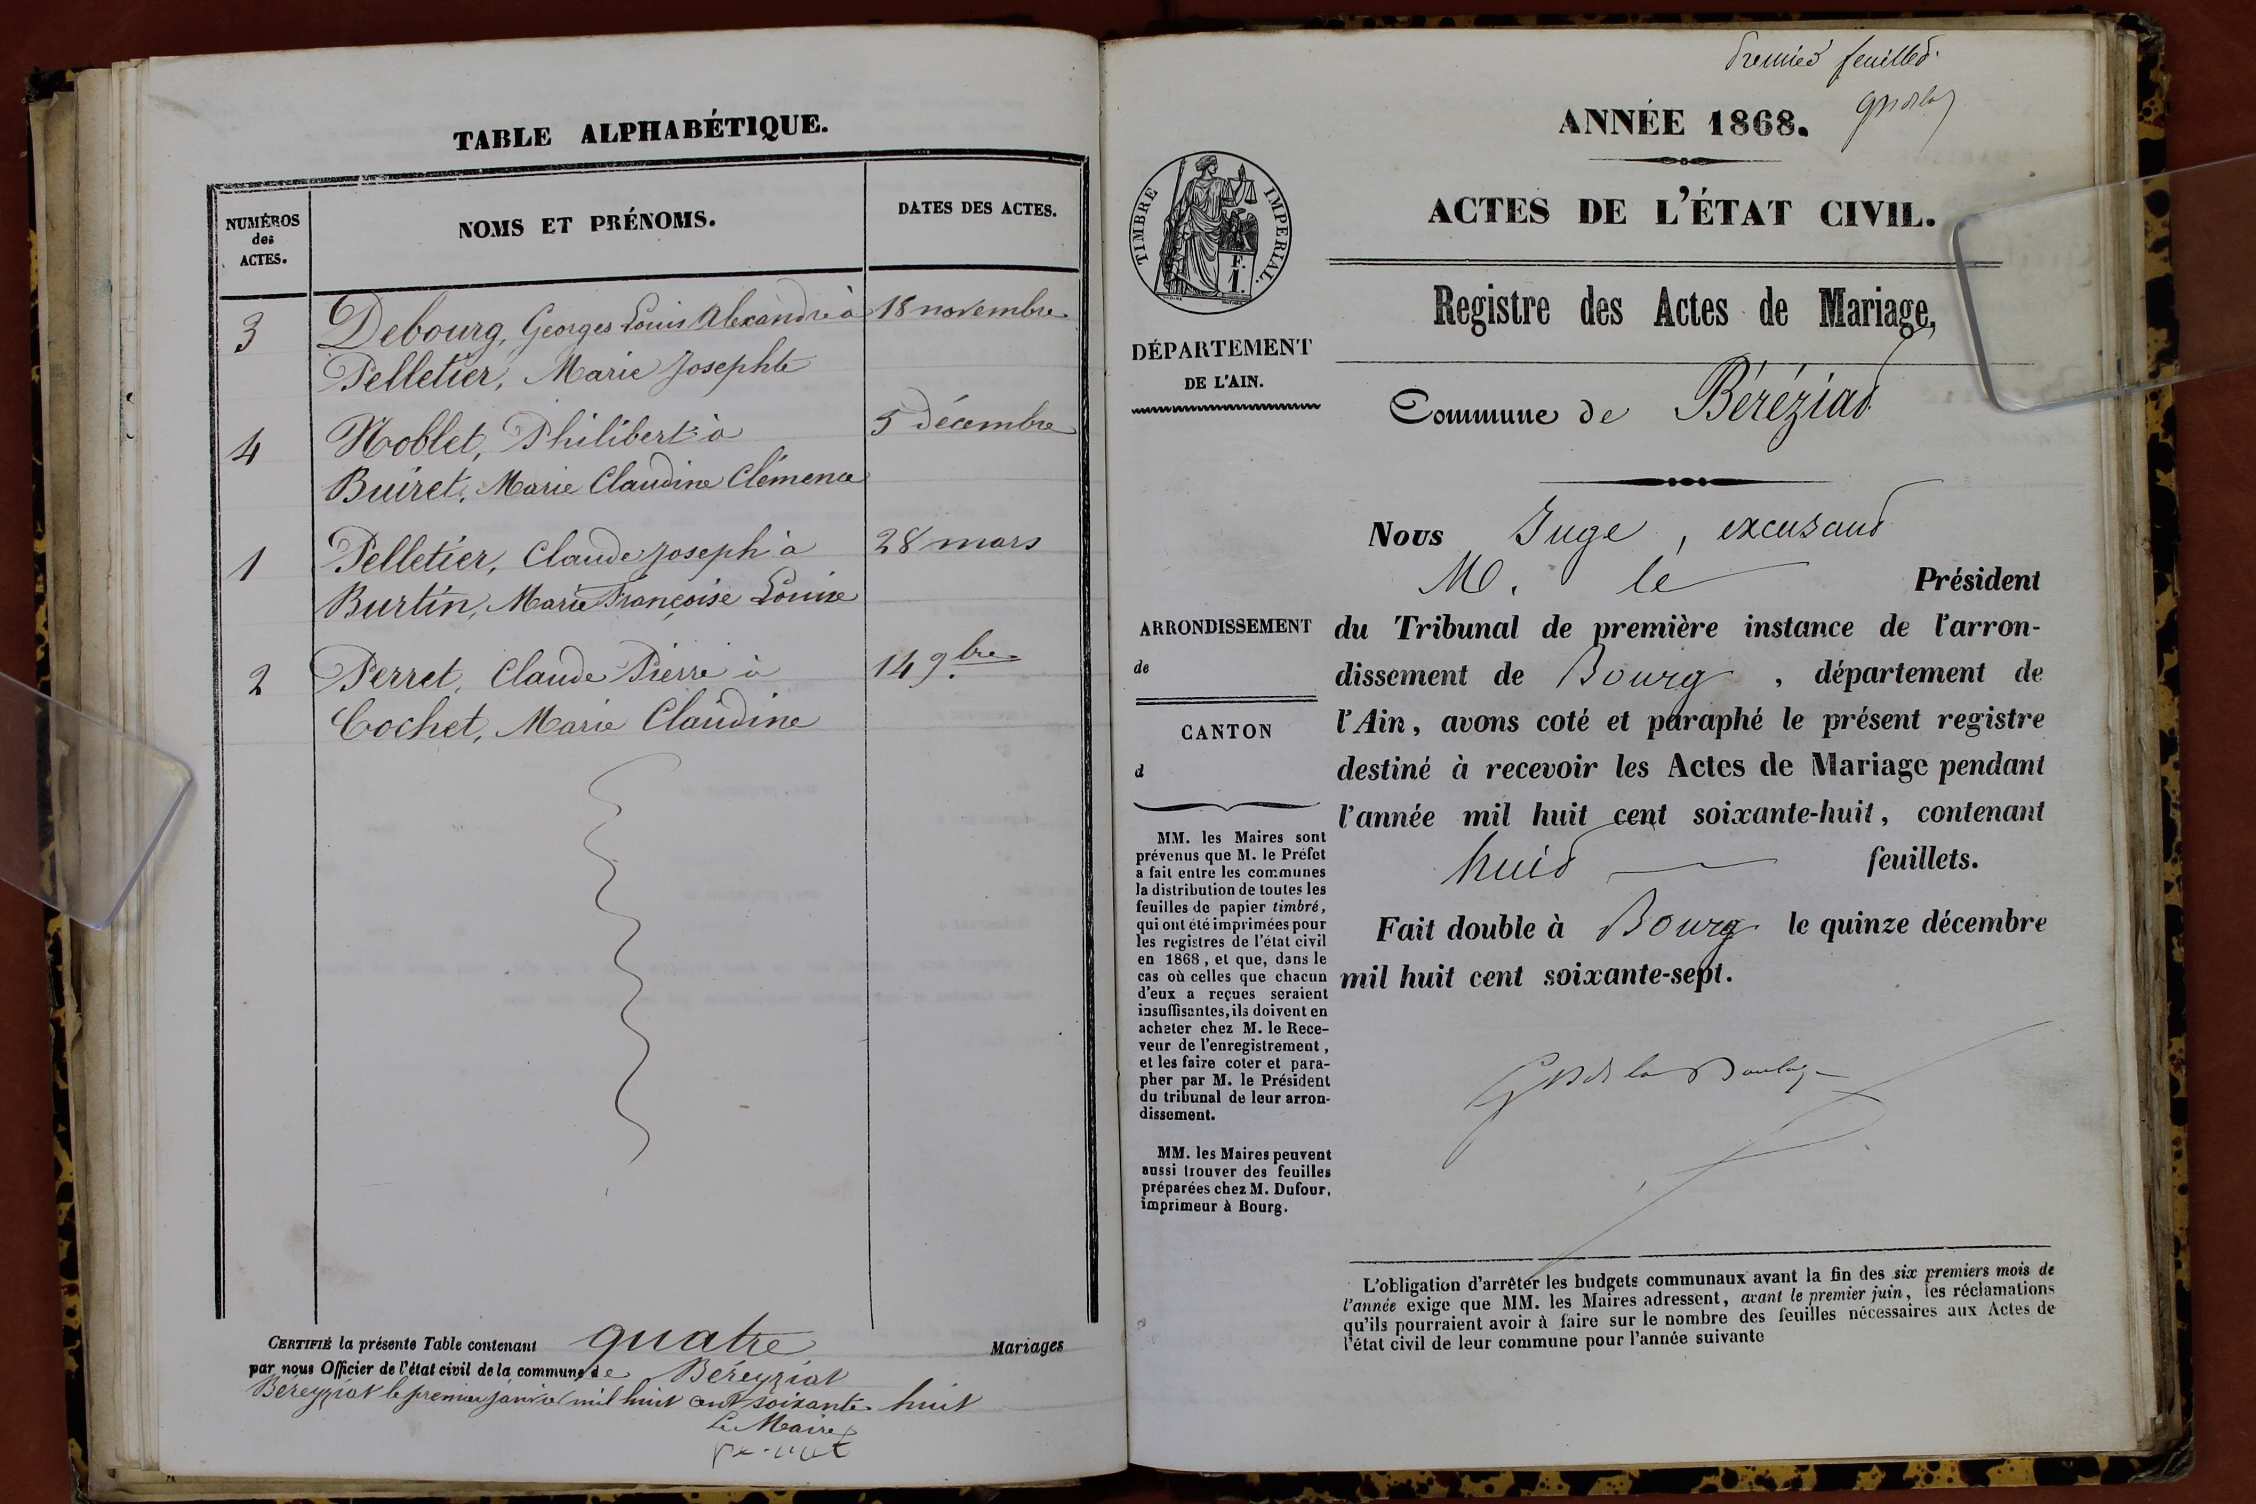 TABLE ALPHABÉTIQUE.
NUMÉROS
des
ACTES.
NOMS ET PRÉNOMS.
DATES DES ACTES.
3 Debourg, Georges Louis Alexandre à 18 novembre
Pelletier, Marie Josephte
4 Noblet, Philibert à 5 décembre
Buiret, Marie Claudine Clémence
1 Pelletier, Claude Joseph à 28 mars
Burtin, Marie Françoise Louise
2 Perret, Claude Pierre à 14 9.bre
Cochet, Marie Claudine
CERTIFIÉ la présente Table contenant quatre Mariages
par nous Officier de l'état civil de la commune de Béreyziat
Béreyziat le premier janvier mil huit cent soixante huit
Le Maire
premier feuillet.
ANNÉE 1868.
ACTES DE L'ÉTAT CIVIL.
TIMBRE IMPÉRIAL.
F.
1.
DÉPARTEMENT
DE L'AIN.
Registre des Actes de Mariage,
Commune de Béréziat
Nous Juge, excusant
M. le Président
du Tribunal de première instance de l'arron-
dissement de Bourg, département de
l'Ain, avons coté et paraphé le présent registre
destiné à recevoir les Actes de Mariage pendant
l'année mil huit cent soixante-huit, contenant
huit feuillets.
Fait double à Bourg le quinze décembre
mil huit cent soixante-sept.
ARRONDISSEMENT
de
CANTON
d
MM. les Maires sont
prévenus que M. le Préfet
a fait entre les communes
la distribution de toutes les
feuilles de papier timbré,
qui ont été imprimées pour
les registres de l'état civil
en 1868, et que, dans le
cas où celles que chacun
d'eux a reçues seraient
insuffisantes, ils doivent en
acheter chez M. le Rece-
veur de l'enregistrement,
et les faire coter et para-
pher par M. le Président
du tribunal de leur arron-
dissement.
MM. les Maires peuvent
aussi trouver des feuilles
préparées chez M. Dufour,
imprimeur à Bourg.
L'obligation d'arrêter les budgets communaux avant la fin des six premiers mois de
l'année exige que MM. les Maires adressent, avant le premier juin, les réclamations
qu'ils pourraient avoir à faire sur le nombre des feuilles nécessaires aux Actes de
l'état civil de leur commune pour l'année suivante